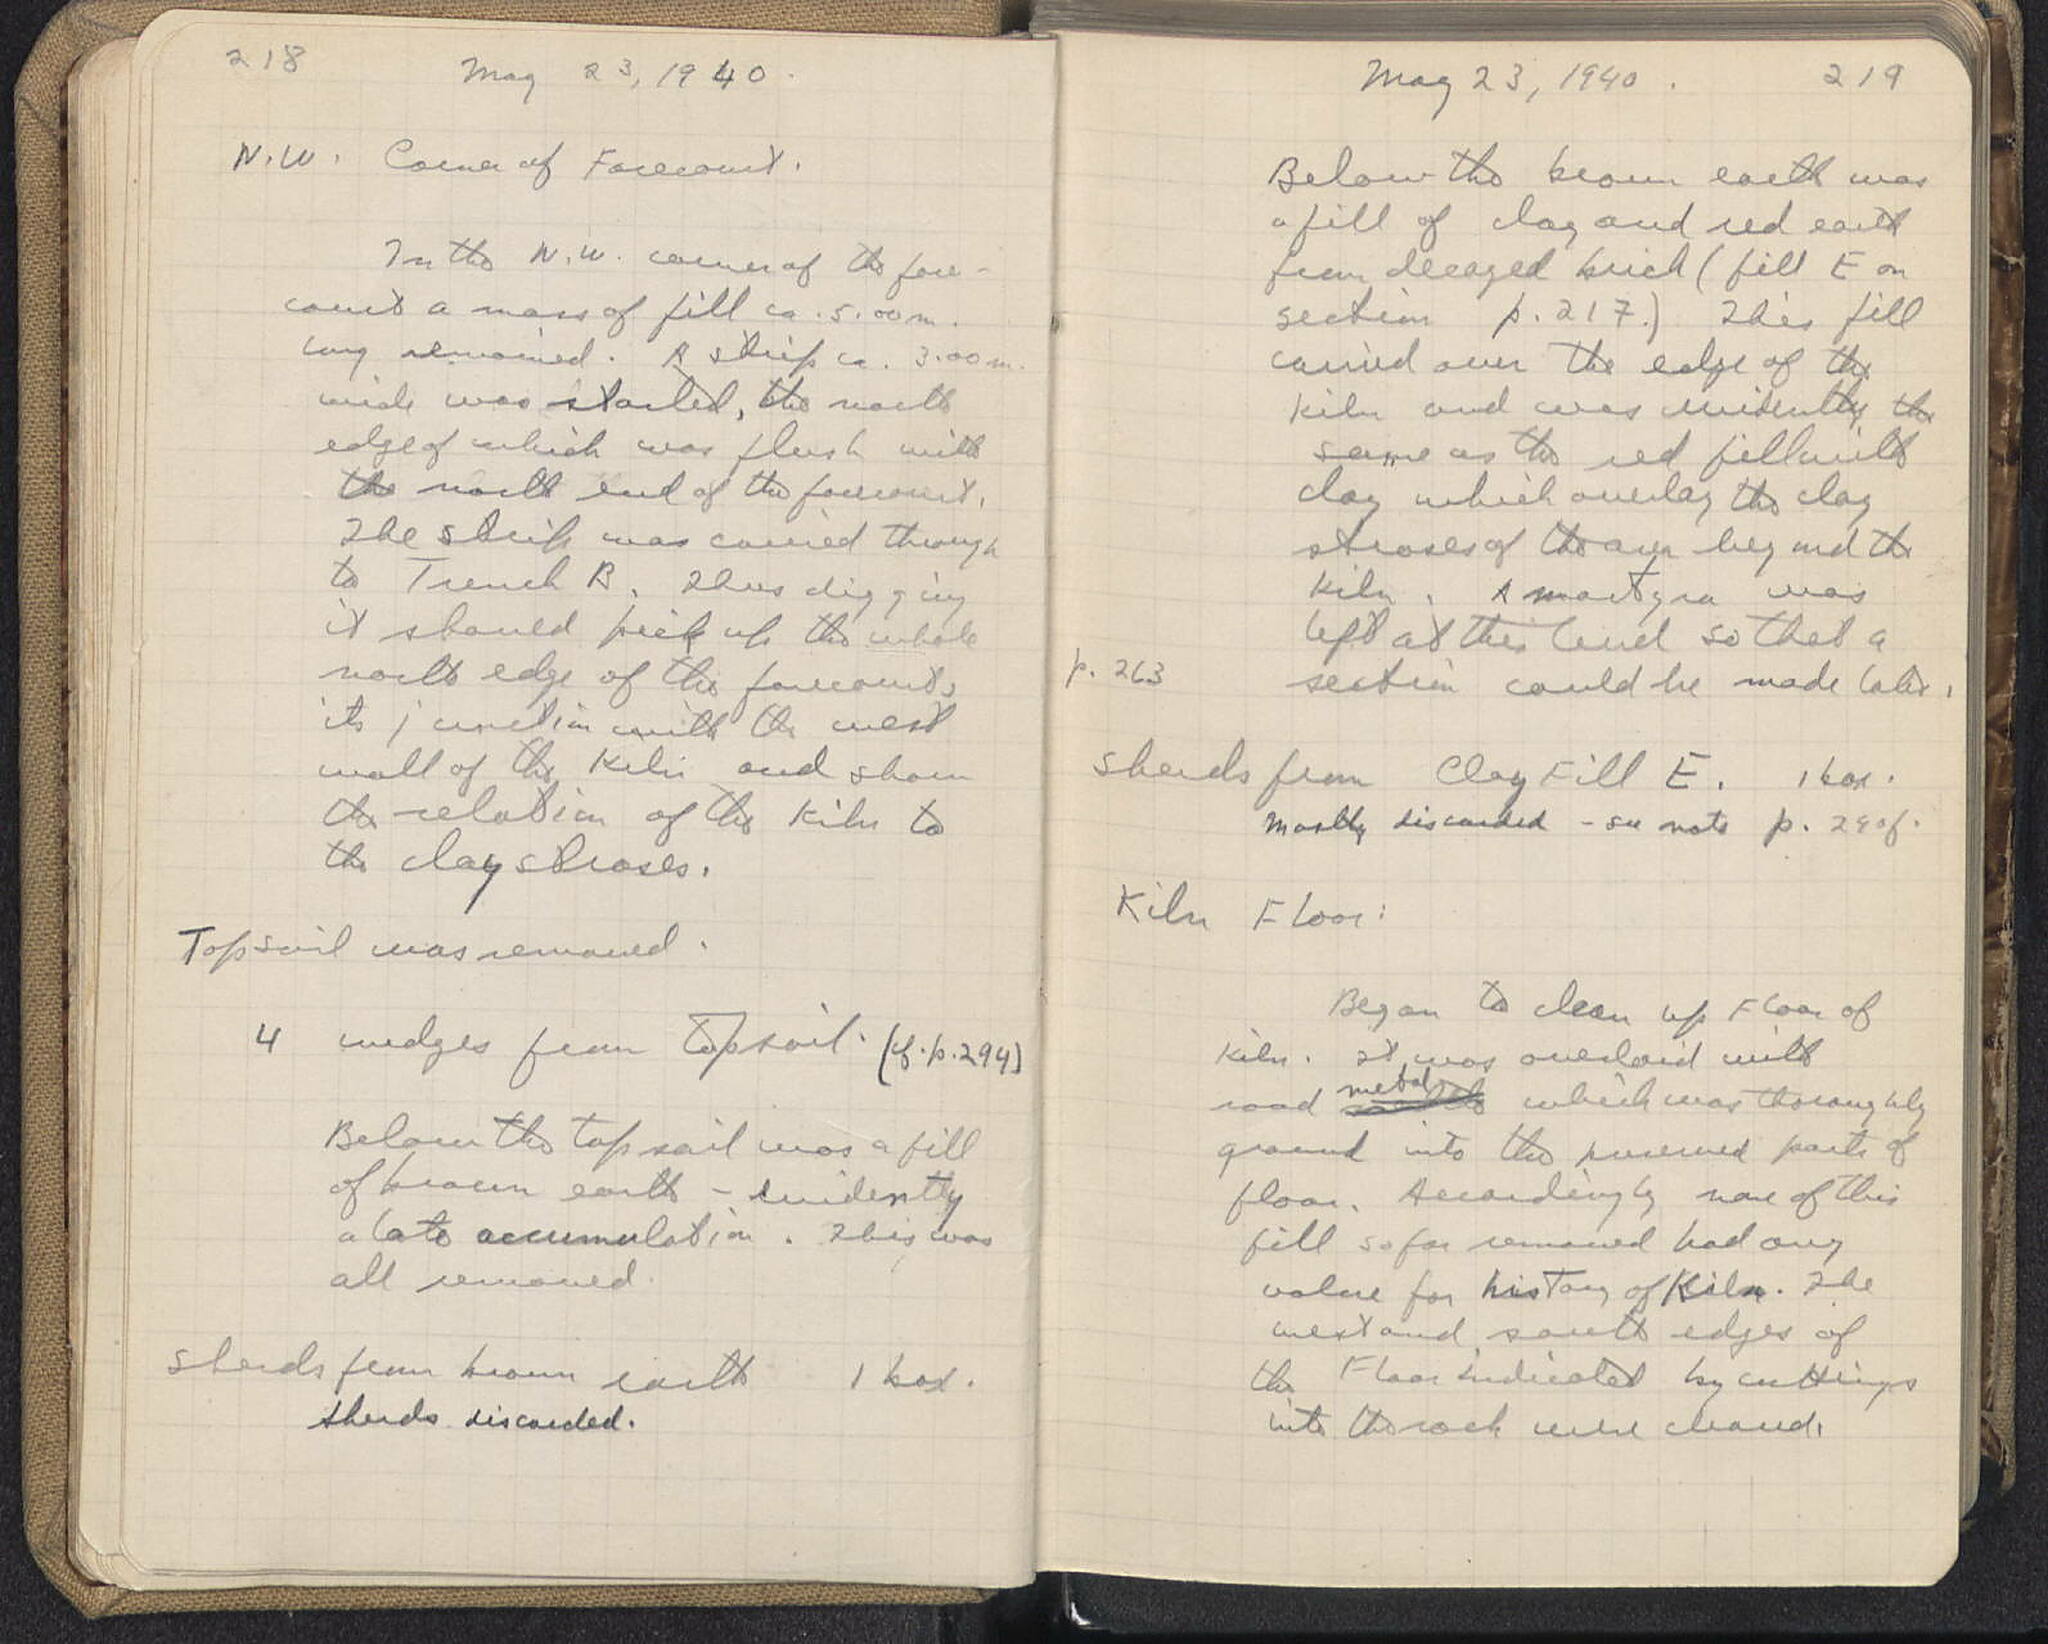 218
May 23, 1940.
N.W. Corner of Forecourt.
In the N.W. corner of the fore-
court a mass of fill ca. 5.00 m.
long remained. A strip ca. 3.00 m.
wide was started, the north
edge of which was flush with
the north end of the forecourt.
The strip was carried through
to Trench B. Thus digging
it should pick up the whole
north edge of the forecourt,
its junction with the west
wall of the Kiln and show
the relation of the Kiln to
the clay stroses.
Topsoil was removed.
4 wedges from Topsoil. (cf. p. 294)
Below the topsoil was a fill
of brown earth - evidently
a late accumulation. This was
all removed.
Sherds from brown earth 1 box.
Sherds discarded.
May 23, 1940. 219
Below the brown earth was
a fill of clay and red earth
from decayed brick (fill E on
section p. 217.) This fill
carried over the edge of the
Kiln and was evidently the
same as the red fill with
clay which overlay the clay
stroses of the area beyond the
Kiln. A martyra was
left at this level so that a
p. 263 section could be made later.
Sherds from Clay Fill E. 1 box.
Mostly discarded - see note p. 290f.
Kiln Floor:
Began to clean up Floor of
Kiln. It was overlaid with
metal
road which was thoroughly
ground into the preserved parts of
floor. Accordingly none of this
fill so far removed had any
value for history of Kiln. The
west and south edges of
the Floor indicated by cuttings
into the rock were cleaned.